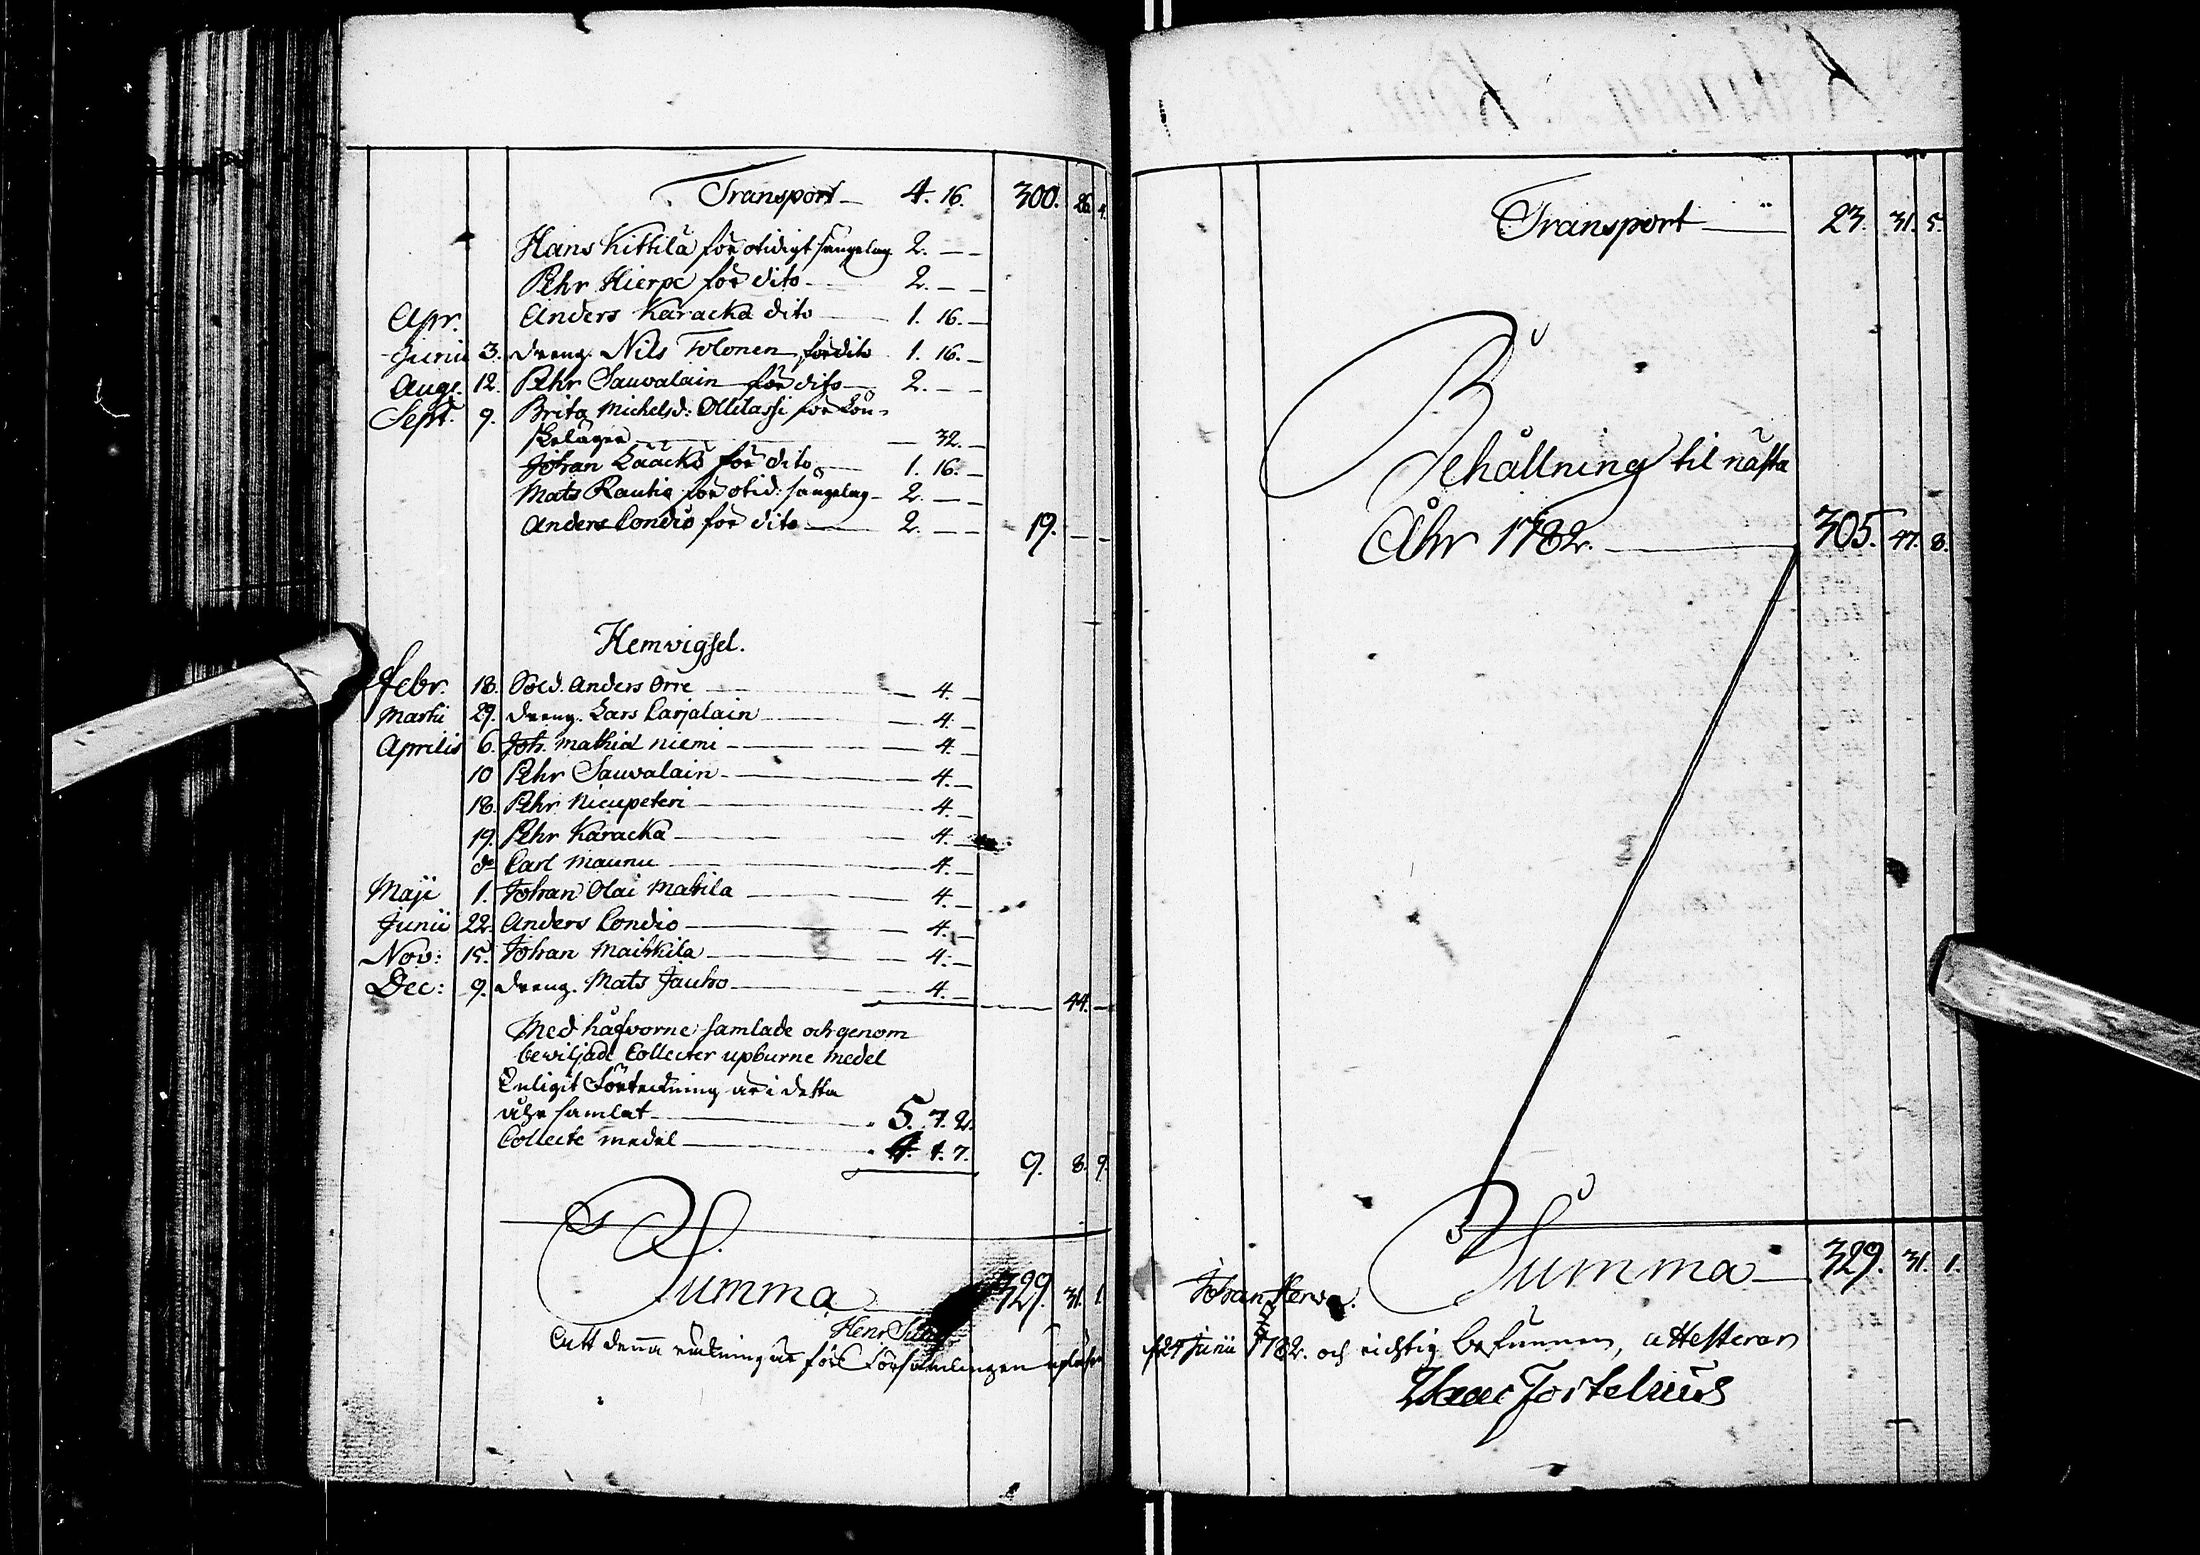 Transport 4. 16. 300. 26. 4.
Hans Kittilä för otidigt sängelag 2. — —
Pehr Hierpe för dito 2. — —
Apr. Anders Karacka dito 1. 16. —
Junii 3. dreng. Nils Tolonen för dito 1. 16. —
Aug. 12. Pehr Sauvalain för dito 2. — —
Sept. 9. Brita Michelsd: Ollilassi för Lön-
skeläger — 32. —
Johan Lääckö för dito 1. 16. —
Mats Rautio för otid: sängelag 2. — —
Anders Condio för dito 2. — — 19. — —
Hemvigsel.
Febr. 18. Sold. Anders Orre — 4. —
Martii 29. dreng. Lars Carjalain — 4. —
Aprilis 6. Joh. Mathiæ Niemi — 4. —
10 Pehr Sauvalain — 4. —
18. Pehr Nicupeteri — 4. —
19. Pehr Karacka — 4. —
do Carl Maunu — 4. —
Maji 1. Johan Olai Mattila — 4. —
Junii 22. Anders Condio — 4. —
Nov: 15. Johan Maitkila — 4. —
Dec: 9. dreng. Mats Jauho — 4. — — 44. —
Med håfvorne samlade och genom
beviljade Collecter upburne medel
Enligit Förteckning är i detta
åhr samlat 5. 7. 2.
Collecte medel 4. 1. 7. 9. 8. 9.
Summa 329. 31. 1.
Henr
Att denna räkning är för Församlingen upläsen
Transport 23. 31. 5.
Behållning til nästa
Åhr 1782. 305. 47. 8.
Summa 329. 31. 1.
Johan
d. 24 Junii 1782. och richtig befunnen, attesterar
Isaac Fortelius